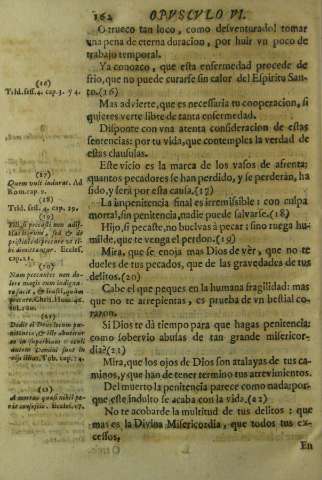 162 OPUSCULO VI.
O trueco tan loco, como desventurado! tomar
una pena de eterna duracion, por huir un poco de
trabajo temporal.
Ya conozco, que esta enfermedad procede de
frio, que no puede curarse sin calor del Espiritu San-
to. (16)
Mas advierte, que es necessaria tu cooperacion, si
quieres verte libre de tanta enfermedad.
Disponte con una atenta consideracion de estas
sentencias: por tu vida, que contemples la verdad de
estas clausulas.
Este vicio es la marca de los vasos de afrenta:
quantos pecadores se han perdido, y se perderàn, ha
sido, y serà por esta causa. (17)
La impenitencia final es irremissible: con culpa
mortal, sin penitencia, nadie puede salvarse. (18)
Hijo, si pecaste, no buelvas à pecar: sino ruega hu-
milde, que te venga el perdon. (19)
Mira, que se enoja mas Dios de vèr, que no te
dueles de tus pecados, que de las gravedades de tus
delitos. (20)
Cabe el que peques en la humana fragilidad: mas
que no te arrepientas, es prueba de un bestial co-
razon.
Si Dios te dà tiempo para que hagas penitencia:
como sobervio abusas de tan grande misericor-
dia? (21)
Mira, que los ojos de Dios son atalayas de tus ca-
minos, y que han de tener termino tus atrevimientos.
Del muerto la penitencia parece como nada: por-
que este indulto se acaba con la vida. (22)
No te acobarde la multitud de tus delitos: que
mas es la Divina Misericordia, que todos tus ex-
cessos,
En
(16)
Trid. sess. 4. cap. 3. y 4.
(17)
Quem vult indurat. Ad
Rom. cap. 9.
(18)
Trid. sess. 4. cap. 29.
(19)
Fili, si peccasti non adij-
cias iterum, sed &
de pristinis deprecare ut ti-
bi dimittantur. Eccles.
cap. 21.
(20)
Nam peccantes non do-
lere magis eum indigna-
re facit, &
(21)
Dedit ei Deus locum pœ-
nitentiæ, & ille abutitur
eo in superbiam: oculi
autem
Job cap. 24.
(22)
A mortuo quasi nihil pe-
rit confessio. Eccles. 17.